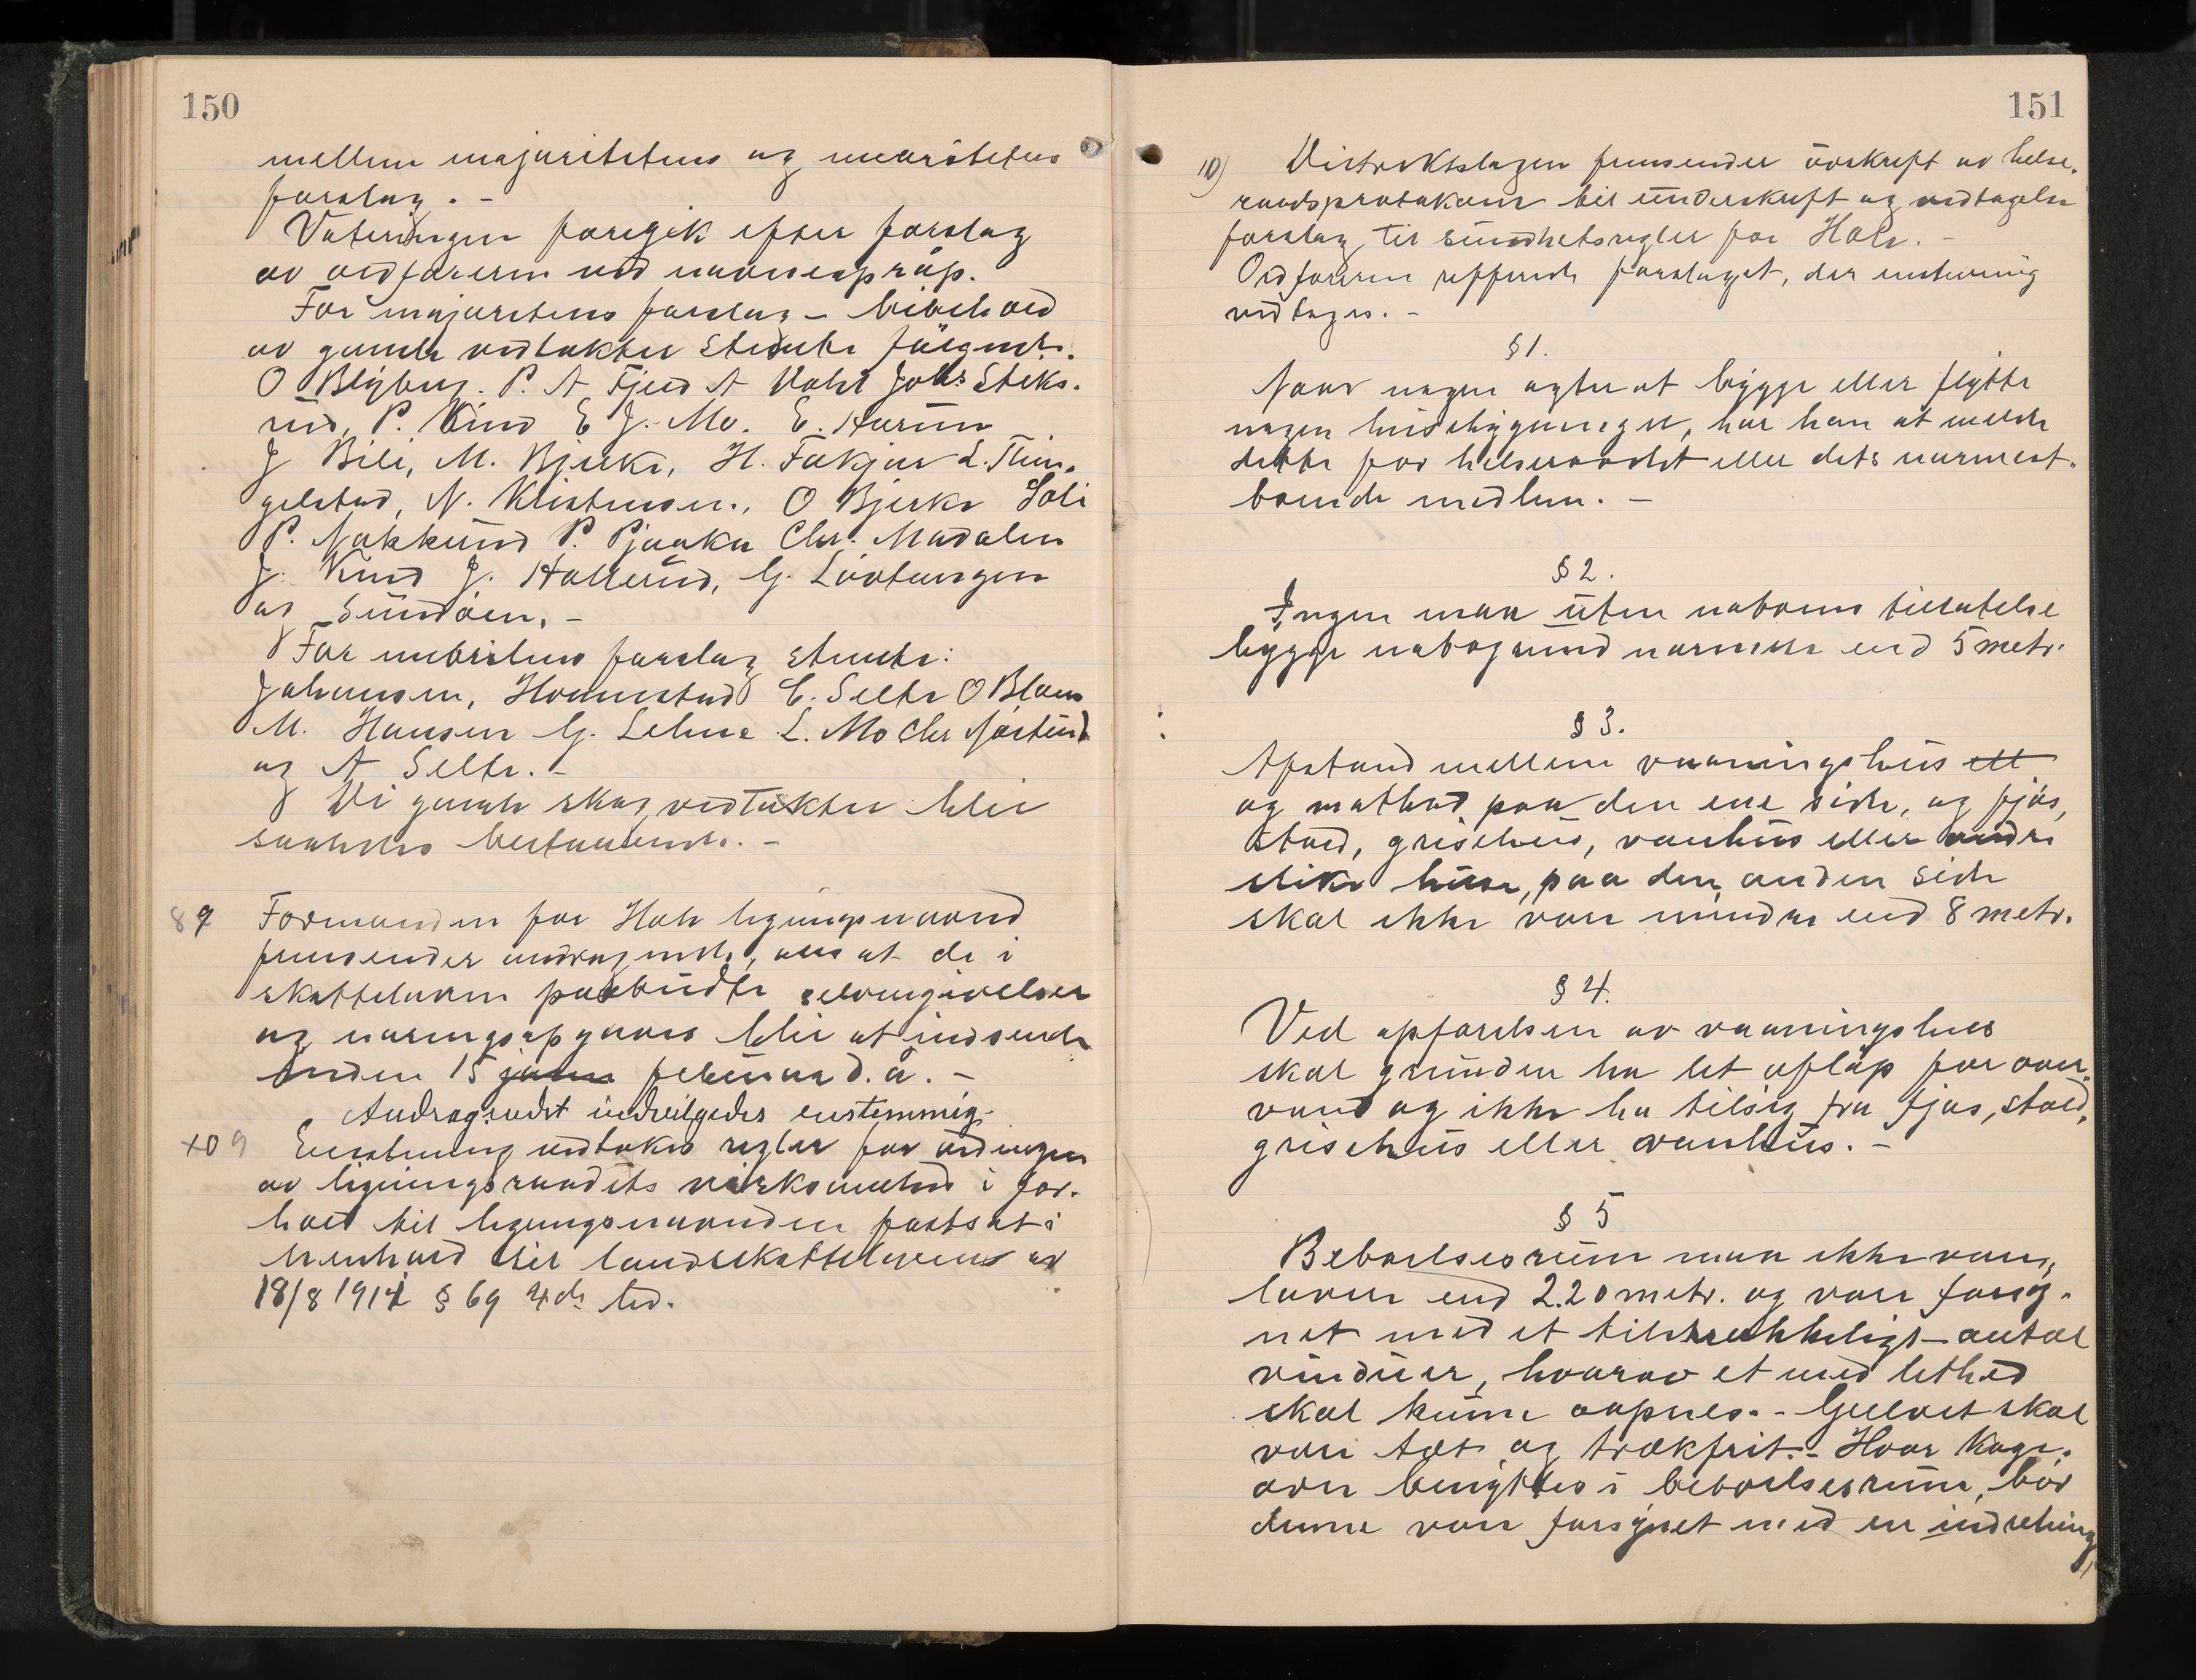 150
mellem majoritetens og minoritetens
forslag. -
Voteringen foregik efter forslag
av ordføreren ved navneopråp.
For majoritetens forslag - bibehold
av gamle vedtækter stemte følgende.
O Blyberg. P. A Fjeld A Dahl Johs Steks-
rud, P. Kind E J. Mo. E.
J Bili, M. Bjerke, H. L. Thin-
gelstad, N. Kristensen., O Bjerke Soli
P. Nakkerud P. Pjaaka Chr. Modalen
J. Kind J. Hollerud, G. Løvtangen
og Sundøen. -
For minoritetens forslag stemte:
Johansen, Hovmestad C. Selte O
M. Hansen G. Lehne L. Mo Chr
og A Selte. -
Di gamle skogvedtækter blir
saaledes bestaaende. -
89 Formanden for Hole ligningsnævnd
fremsender andragende, om at de i
skatteloven paabudte selvangivelser
og næringsopgaver blir at indsende
inden 15 januar februar d.å. -
Andragendet indvilgedes enstemmig.
9 Enstemmig vedtokes regler for ordningen
av ligningsraadets virksomhed i for-
hold til ligningsnævnden fastsat i
henhold til landsskattelovens av
18/8 1911 § 69 4de led.
151
10) Distriktslægen fremsender avskrift av helse-
raadsprotokollen til underskrift og vedtagelse
forslag til sundhetsregler for Hole. -
Ordføreren referede forslaget, der enstemmig
vedtages. -
§ 1.
Naar nogen agter at bygge eller flytte
nogen husebygninger, har han at melde
dette for helseraadet eller dets nærmest-
boende medlem. -
§ 2.
Ingen maa uten naboens tilladelse
bygge nabogrund nærmere end 5 metr.
§ 3.
Afstand mellem vaaningshus ell
og matbod paa den ene side, og fjøs,
stald, grisehus, vanhus eller andre
slike huse, paa den anden side
skal ikke være mindre end 8 metr.
§ 4.
Ved opførelsen av vaaningshus
skal grunden ha let afløp for over-
vand og ikke ha tilsig fra fjøs, stald,
grisehus eller vanhus. -
§ 5
Beboelsesrum maa ikke være
lavere end 2.20 metr. og være forsy-
net med et tilstrækkeligt antal
vinduer, hvorav et med lethed
skal kunne aapnes. - Gulvet skal
være tæt og trækfrit. - Hvor koge-
ovn benyttes i beboelsesrum, bør
denne være forsynet med en indretning